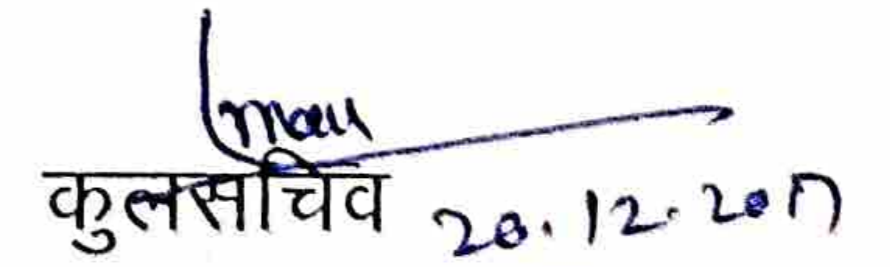 कुलसचिव 20.12.2017